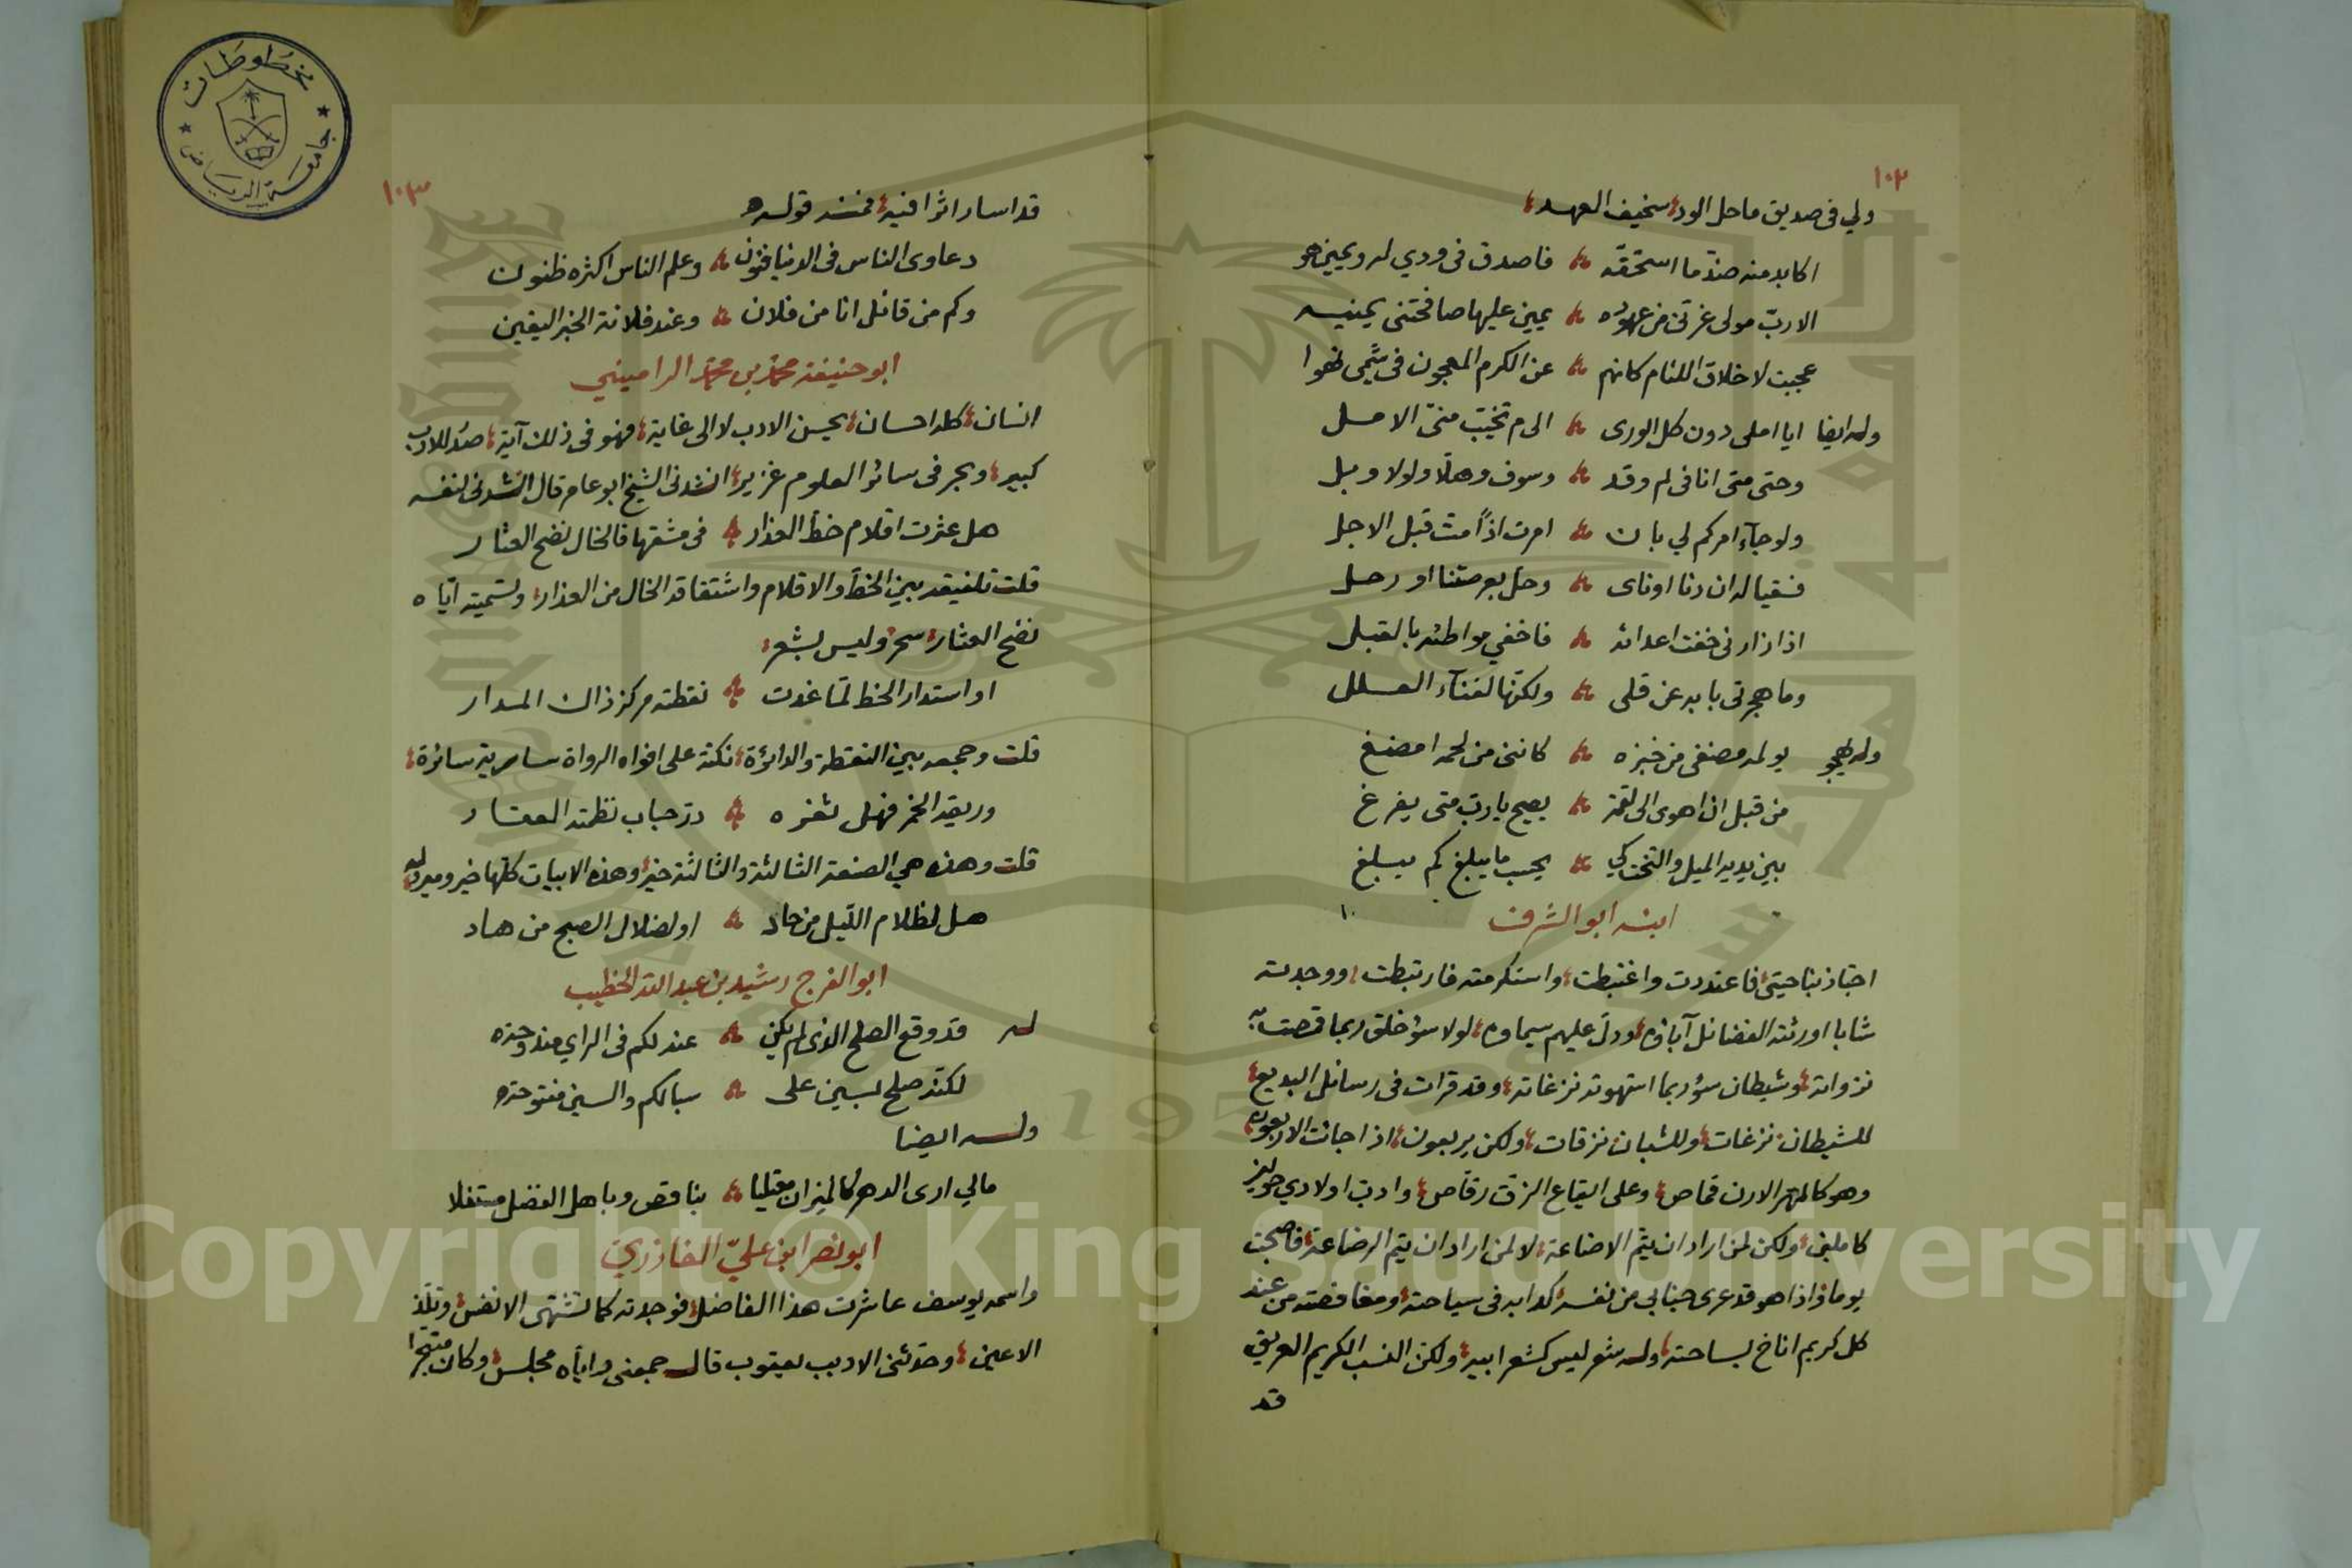 ١٠٢
ولي في صديق ما حل الود سخيف العهد
اكابد منه ضد ما استحقه فاصدق في ودي له ويمين هو
الا رب مولى غرني من عهوده يمين عليها صافحتني يمينه
عجبت لاخلاق اللئام كانهم عن الكرم المعجون في شيمى نهوا
وله ايضا ايا املى دون كل الورى الى م تخيب منى الامل
وحتى متى انا في لم وقد وسوف وهلا ولولا وبل
ولو جاء امركم لي بان امرت اذا مت قبل الاجل
فسقيا له ان دنا او ناى وحل بعرصتنا او رحل
اذا زارنى خفت اعدائه فاخفي مواطئه بالقبل
وما هجرتى بابه عن قلى ولكنها لفناء العلل
وله يهجو يولمه مضغى من خبزه كاننى من لحمه امضغ
من قبل ان اهوى الى لقمة يصيح يا رب متى يفرغ
بين يديه الميل والتخت كي يحسب ما يبلغ كم يبلغ
ابنه ابو الشرف
اجتاز بناحيتى فاعتددت واغتبطت واستكرمته فارتبطت ووجدته
شابا اورثته الفضائل آباؤه ودل عليهم سيماوه لولا سؤ خلق ربما قصت به
نزواته وشيطان سؤ ربما استهوته نزغاته وقد قرات في رسائل البديع
للشيطان نزغات وللشبان نزقات ولكن يربعون اذا جائت الاربعون
وهو كالمهر الارن قماص وعلى ايقاع الزق رقاص وادب اولادي حولين
كاملين ولكن لمن اراد ان يتم الاضاعة لا لمن اراد ان يتم الرضاعة فاصبحت
يوما واذا هو قد عرى جنابي من نفسه كدابه في سياحته ومغافصته من عند
كل كريم اناخ بساحته وله شعر ليس كشعر ابيه ولكن النسب الكريم العريق
قد
١٠٣
قد اسار اثرا فيه فمنه قوله
دعاوى الناس في الدنيا فنون وعلم الناس اكثره ظنون
وكم من قائل انا من فلان وعند فلانة الخبر اليقين
ابو حنيفة محمد بن محمد الراميني
انسان كله احسان يحسن الادب لا الى غاية فهو في ذلك آية صدر للادب
كبير وبحر في سائر العلوم غزير انشدنى الشيخ ابو عامر قال انشدنى لنفسه
هل عثرت اقلام خط العذار في مشقها فالخال نضح العثار
قلت تلفيقه بين الخط والاقلام واشتقاقه الخال من العذار وتسميته اياه
نضح العثار سحر وليس بشعر
او استدار الخط لما غدت نقطته مركز ذاك المدار
قلت وجمعه بين النقطة والدائرة نكتة على افواه الرواة سارية سائرة
وريقه الخمر فهل ثغره در حباب نظمته العقار
قلت وهذه هي الصنعة الثالثة والثالثة خير وهذه الابيات كلها خير ومير وله
هل لظلام الليل من حاد او لضلال الصبح من هاد
ابو الفرج رشيد بن عبد الله الخطيب
له قد وقع الصلح الذى لم يكن عندلكم في الراي مندوحه
لكنه صلح يسين على سبالكم والسين مفتوحه
وله ايضا
مالي ارى الدهر كالميزان معتليا بناقص وباهل الفضل مستفلا
ابو نصر ابن علي الخازرزي
واسمه يوسف عاشرت هذا الفاضل فوجدته كما تشتهى الانفس وتلذ
الاعين وحدثنى الاديب يعقوب قال جمعنى واياه مجلس وكان متبجرا
مخطوطات
جامعة الرياض
1957
Copyright © King Saud University